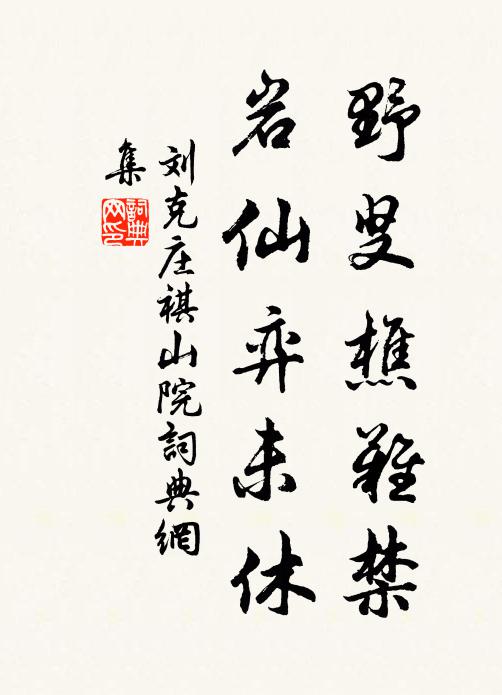 野叟樵難禁
岩仙弈未休
刘克庄祺山院詞典網
集
詞典
网印